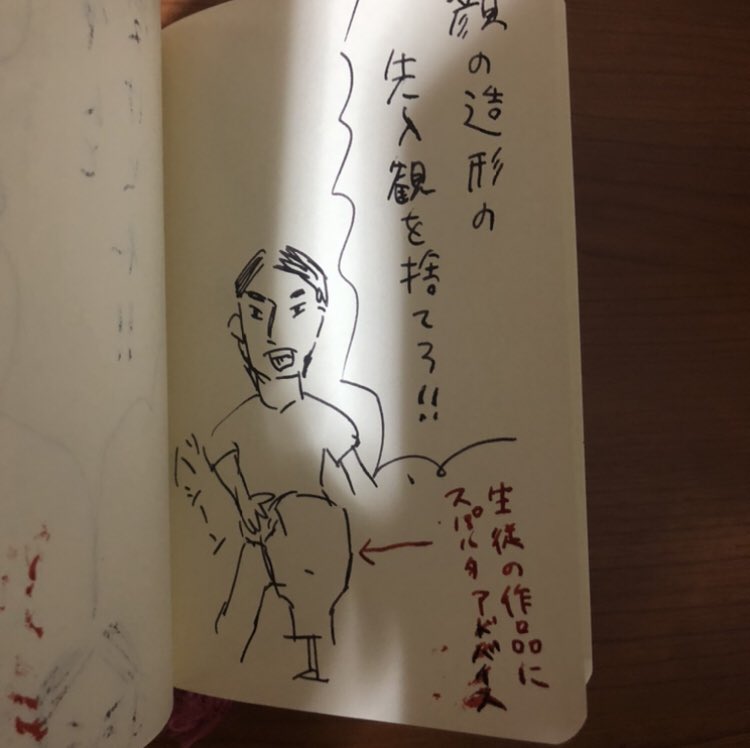 顔の造形の
先入観を捨てろ!!
バシーン
生徒の作品に
スパルタアドバイス